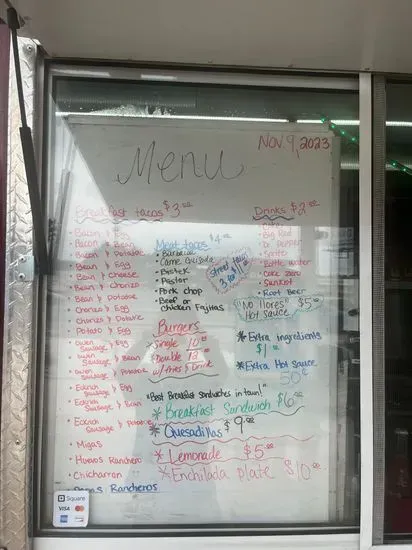 Nov. 9, 2023
Menu
Breakfast tacos $3.00
• Bacon & Egg
• Bacon & Bean
• Bacon & Potatoe
• Bean & Egg
• Bean & Cheese
• Bean & Chorizo
• Bean & Potatoe
• Chorizo & Egg
• Chorizo & Potatoe
• Potato & Egg
• Owen Sausage & Egg
• Owen Sausage & Bean
• Owen Sausage & Potatoe
• Eckrich Sausage & Egg
• Eckrich Sausage & Bean
• Eckrich Sausage & Potatoe
• Migas
• Huevos Ranchero
• Chicharron
Rancheros
Meat tacos $4.00
• Barbacoa
• Carne Guisada
• Bistek
• Pastor
• Pork chop
• Beef or
chicken Fajitas
street tacos
3 for $11
Burgers
• Single 10.00
• Double 13.00
w/ fries & Drink
Drinks $2.00
• Coke
• Big Red
• Dr. Pepper
• Sprite
• Bottle water
• Coke zero
• Sunkist
• Root Beer
"No llores" $5.00
Hot sauce
* Extra ingredients
$1.00
* Extra Hot Sauce
50¢
"Best Breakfast sandwiches in town!"
* Breakfast Sandwich $6.00
* Quesadillas $9.00
* Lemonade $5.00
* Enchilada plate $10.00
Square
VISA